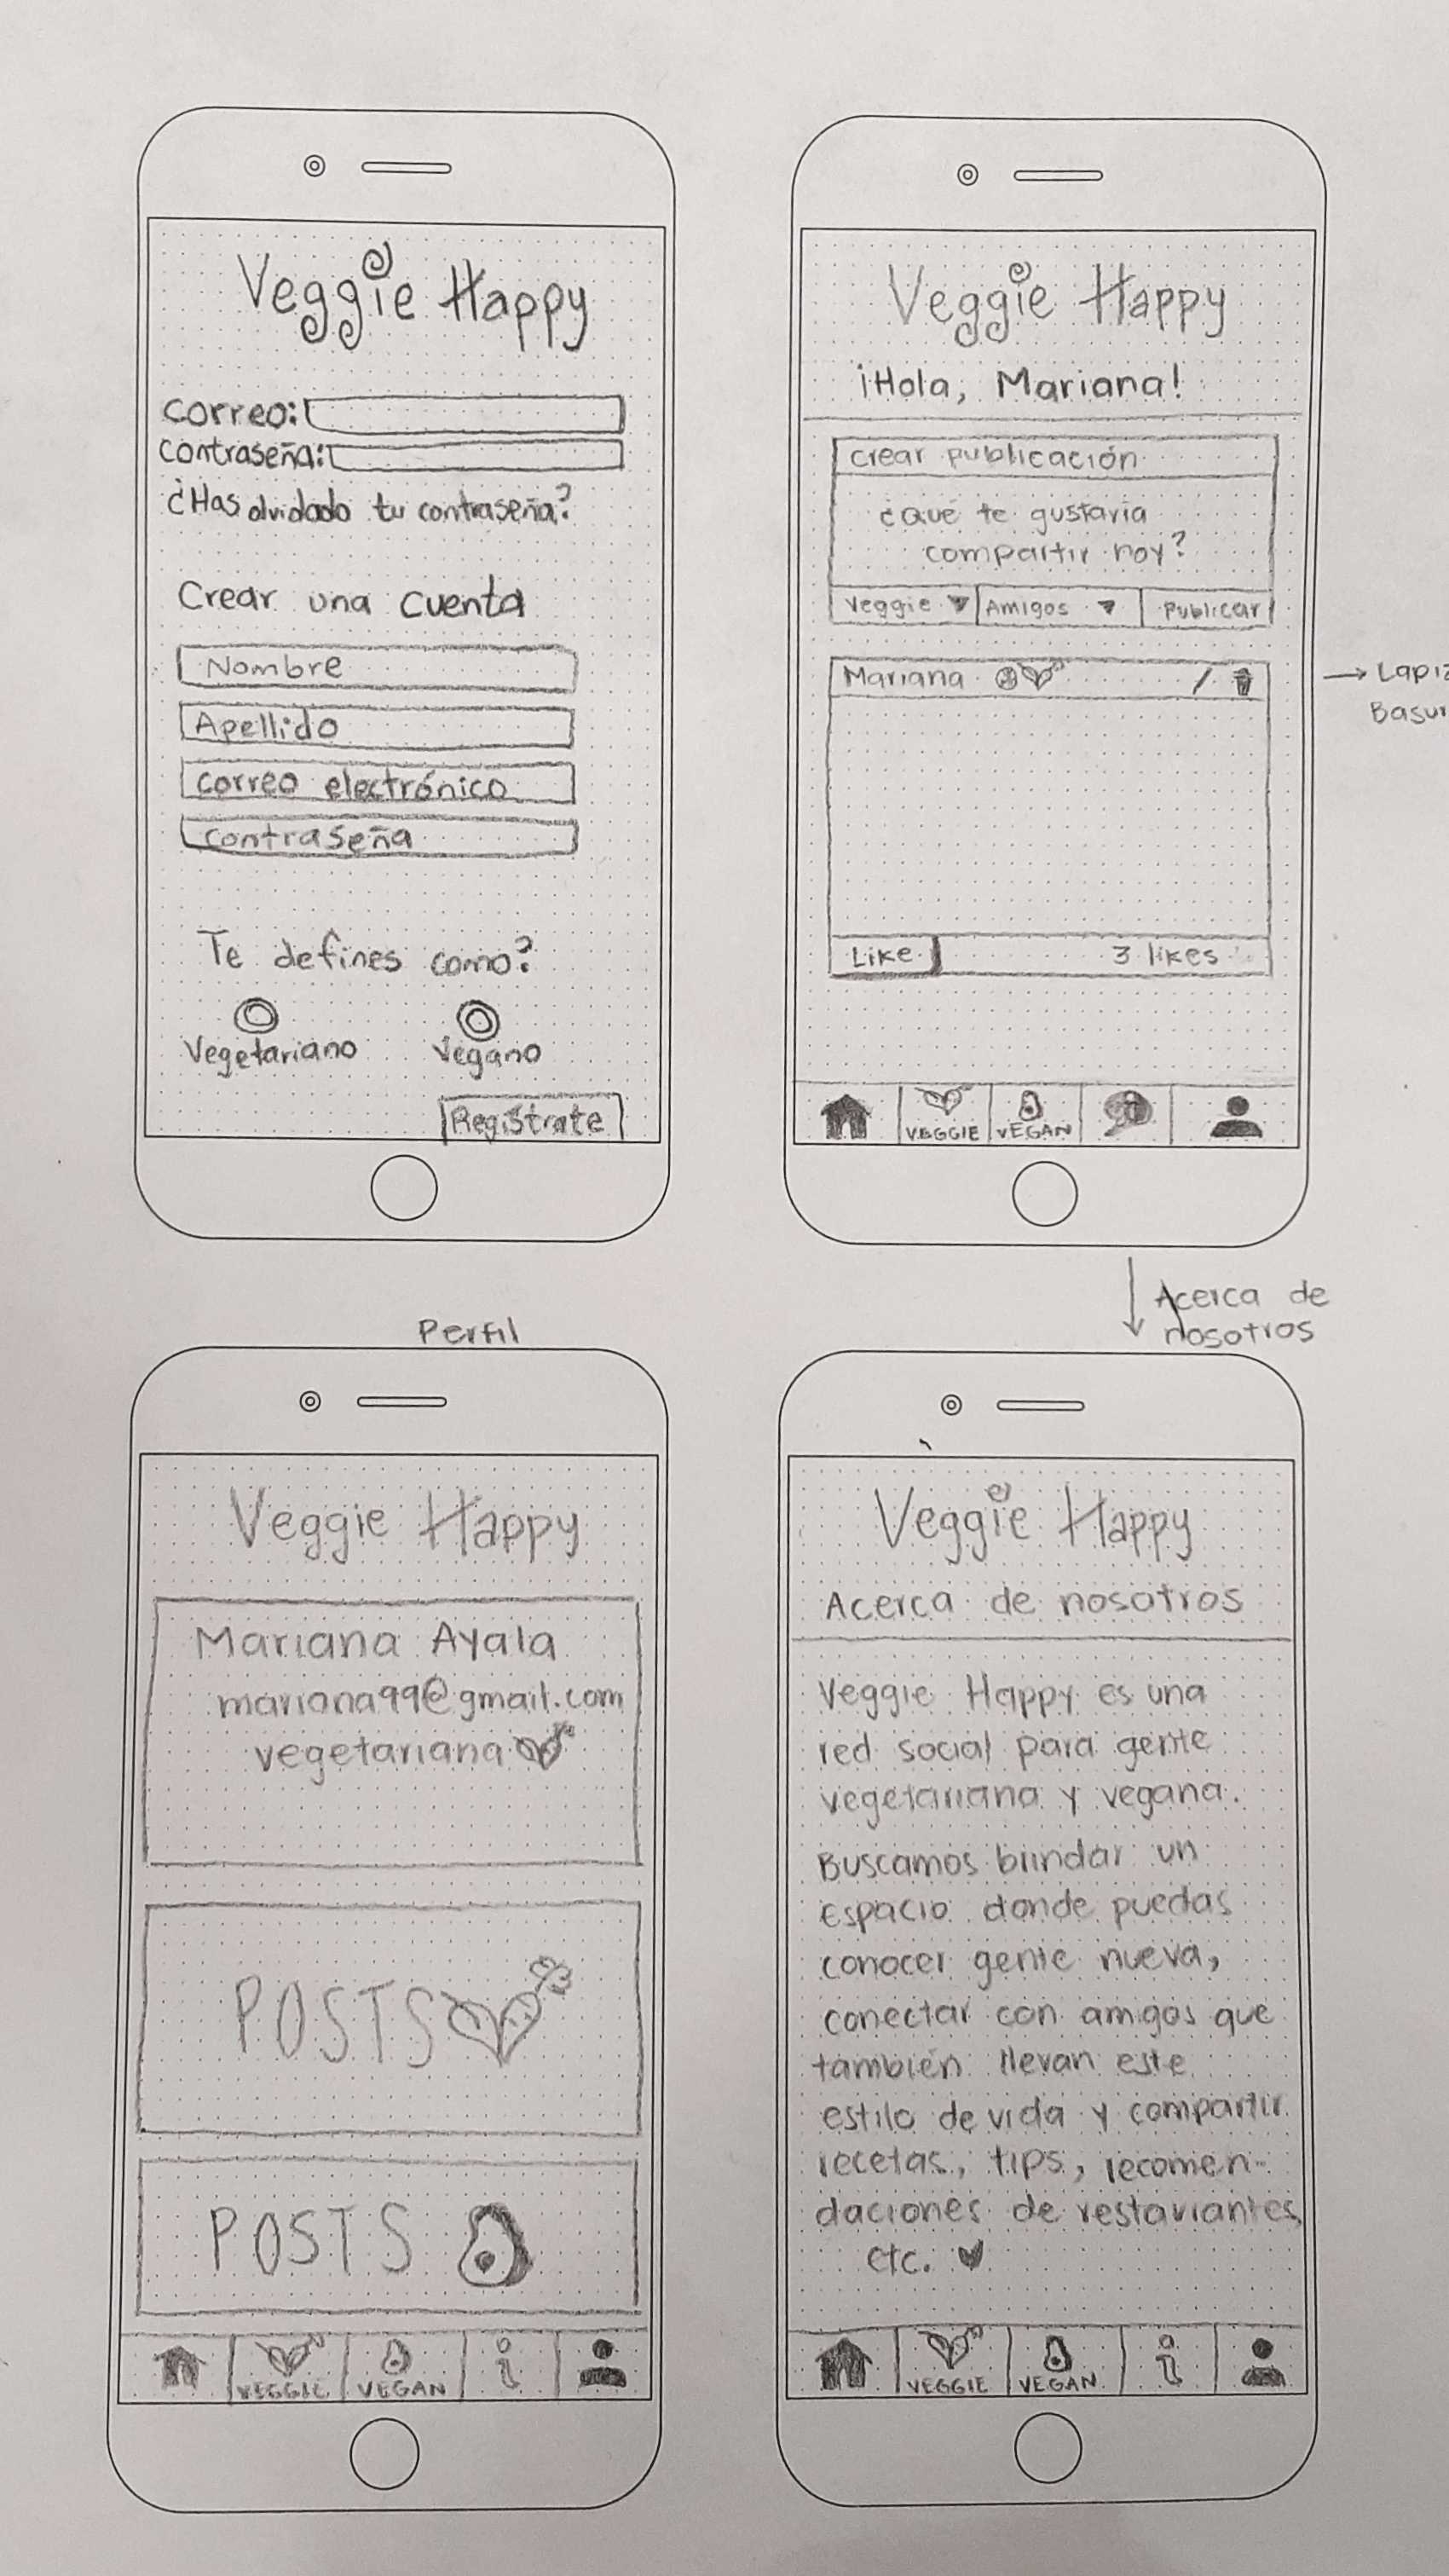 Veggie Happy
Correo:
Contraseña:
¿Has olvidado tu contraseña?
Crear una cuenta
Nombre
Apellido
correo electrónico
contraseña
Te defines como?
Vegetariano Vegano
Regístrate
Veggie Happy
¡Hola, Mariana!
crear publicación
¿Qué te gustaría
compartir hoy?
Veggie Amigos Publicar
Mariana
Like 3 likes
VEGGIE VEGAN
→ Lapiz
Basur
Acerca de
nosotros
Perfil
Veggie Happy
Mariana Ayala
mariana99@gmail.com
vegetariana
POSTS
POSTS
VEGGIE VEGAN i
Veggie Happy
Acerca de nosotros
Veggie Happy es una
red social para gente
vegetariana y vegana.
Buscamos brindar un
espacio donde puedas
conocer gente nueva,
conectar con amigos que
también llevan este
estilo de vida y compartir
recetas, tips, recomen-
daciones de restaurantes,
etc.
VEGGIE VEGAN i